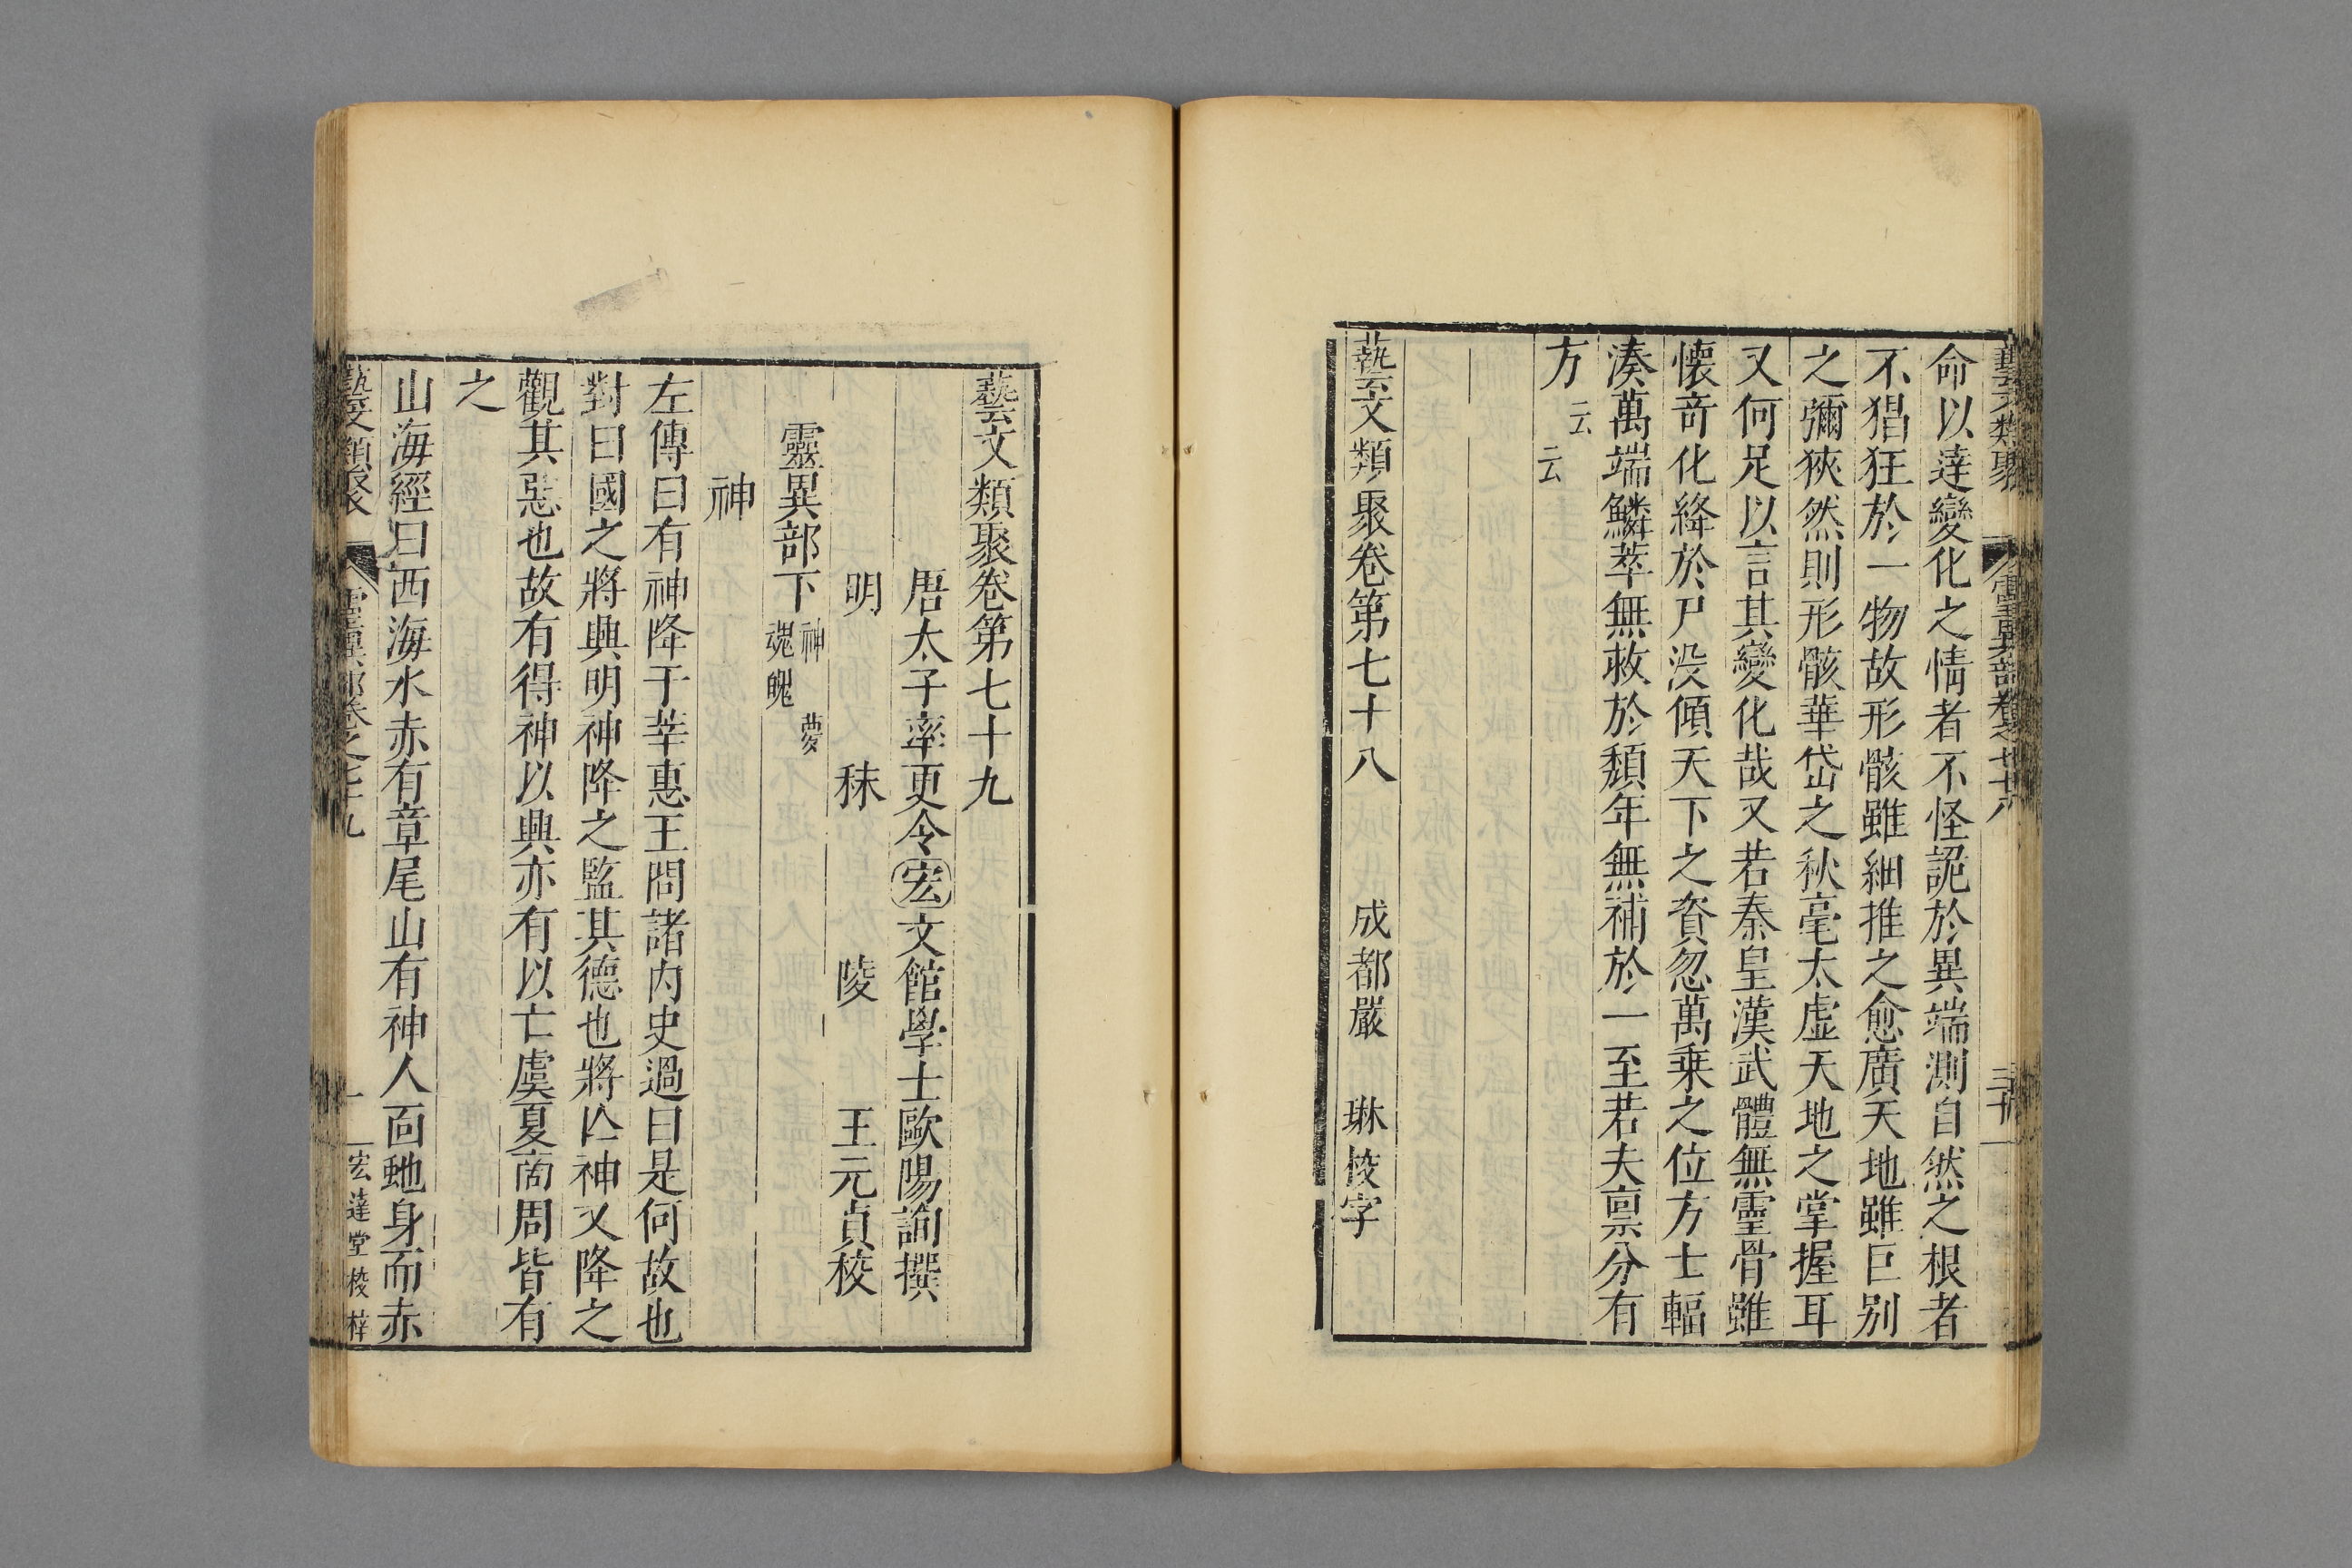 藝文類聚
靈異部卷之七十八
命以達變化之情者不怪詭於異端測自然之根者
不猖狂於一物故形骸雖細推之愈廣天地雖巨别
之彌狹然則形骸華岱之秋毫太虚天地之掌握耳
又何足以言其變化哉又若秦皇漢武體無靈骨雖
懷竒化絳於尸没傾天下之資忽萬乗之位方士輻
湊萬端鱗萃無救於頽年無補於一至若夫禀分有
方云云
藝文類聚卷第七十八 成都嚴 琳校字
藝文類聚卷第七十九
唐太子率更令宏文館學士歐陽詢撰
明 秣 陵 王元貞校
靈異部下神 夢 魂魄
神
左傳曰有神降于莘惠王問諸内史過曰是何故也
對曰國之將興明神降之監其德也將亾神又降之
觀其惡也故有得神以興亦有以亡虞夏商周皆有
之
山海經曰西海水赤有章尾山有神人面虵身而赤
藝文類聚 靈異部卷之七十九 一 宏達堂校梓